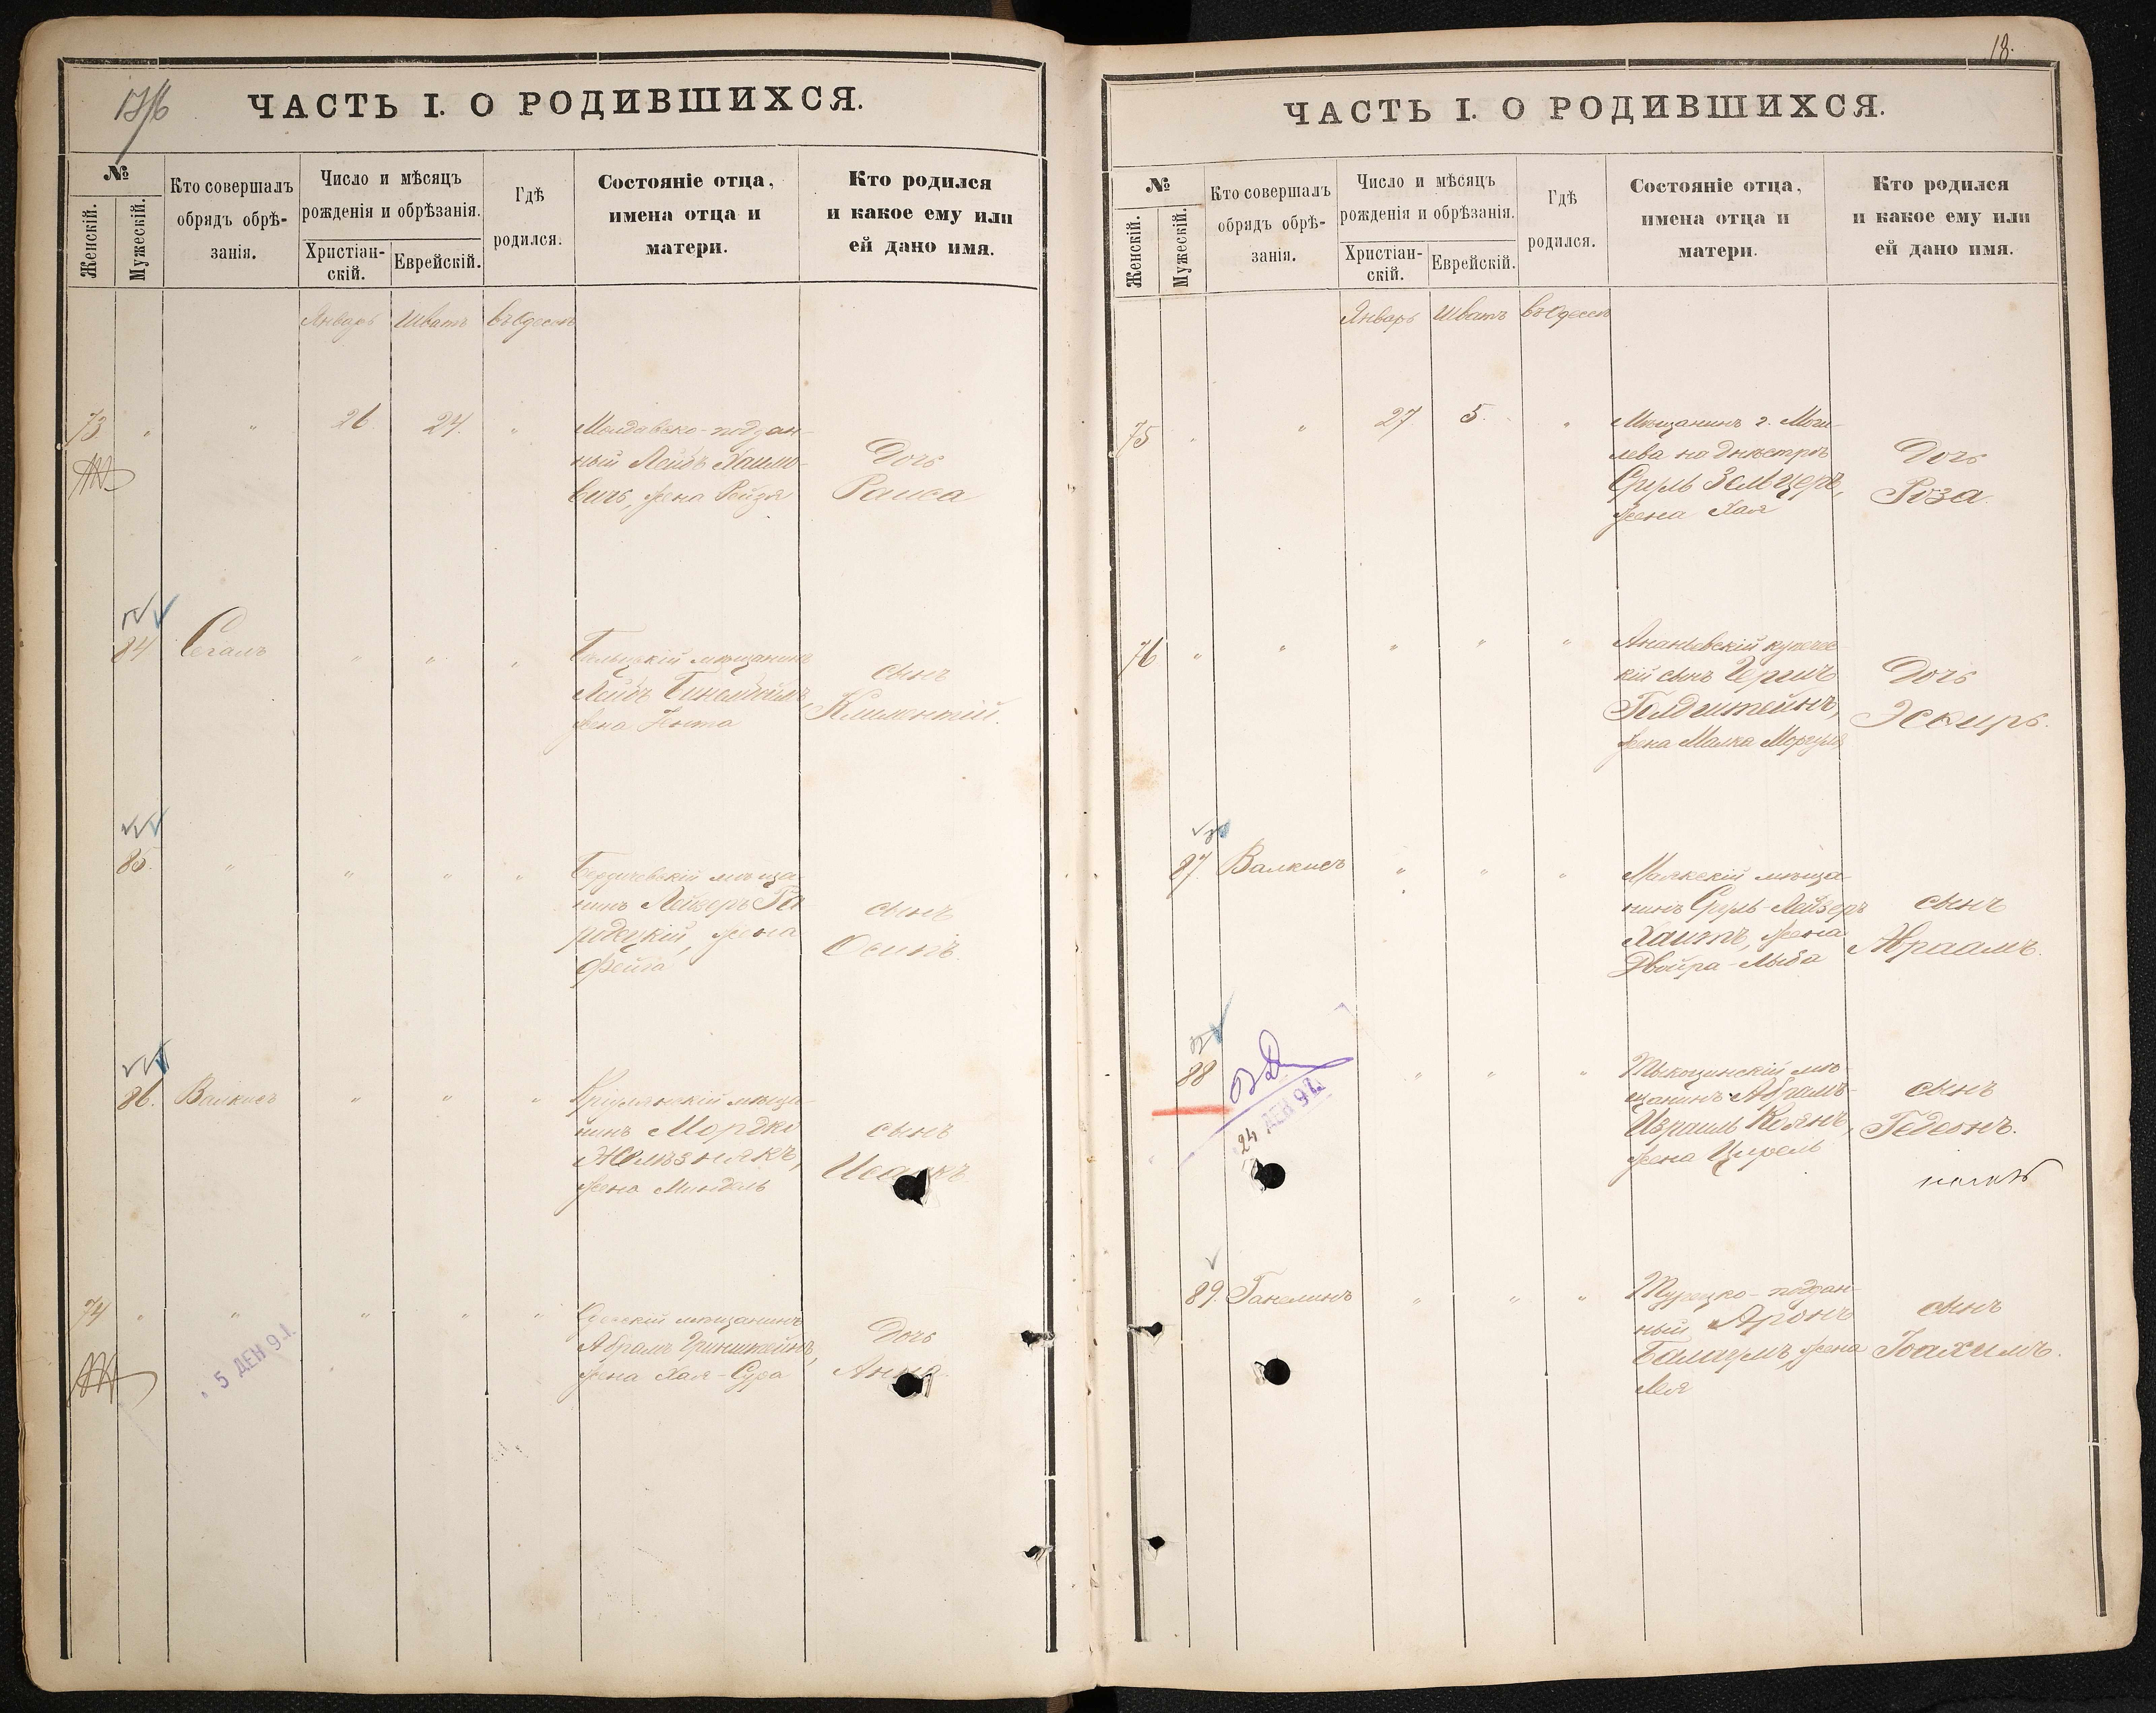 ЧАСТЬ I. О РОДИВШИХСЯ.
№
Женскій.
Мужескій.
Кто совершалъ
обрядъ обрѣ-
занія.
Число и мѣсяцъ
рожденія и обрѣзанія.
Христіан-
скій.
Еврейскій.
Гдѣ
родился.
Состояніе отца,
имена отца и
матери.
Кто родился
и какое ему или
ей дано имя.
Январь Шватъ въ Одессѣ
73 " " 26 24. "
Молдавско-поддан-
ный Лейбъ Хаимо-
вичъ, жена Рейзя
Дочь
Раиса
84 Сегалъ " " "
мѣщанинъ
Лейбъ
жена Ента
сынъ
Климентій.
85. " " " "
Бердичевскій мѣща-
нинъ Лейзеръ Го
родецкій, жена
Фейга
сынъ
Осипъ.
86. Валкисъ " " "
Кріулянскій мѣща-
нинъ Мордко
Желѣзнякъ,
жена Миндль
сынъ
Исаакъ
74 " " " " "
5 ДЕН 91.
Одесскій мѣщанинъ
Абрамъ Гринштейнъ,
жена Хая-Сура
Дочь
Анна
18.
ЧАСТЬ I. О РОДИВШИХСЯ.
№
Женскій.
Мужескій.
Кто совершалъ
обрядъ обрѣ-
занія.
Число и мѣсяцъ
рожденія и обрѣзанія.
Христіан-
скій.
Еврейскій.
Гдѣ
родился.
Состояніе отца,
имена отца и
матери.
Кто родился
и какое ему или
ей дано имя.
Январь Шватъ въ Одессѣ
75 " " 27 5. "
Мѣщанинъ г. Моги-
лева на Днѣстрѣ
Сруль Зельцеръ,
жена Хая
Дочь
Роза.
76 " " " " "
Ананьевскій купечес
кій сынъ Гершъ
Голдштейнъ,
жена Малка
Дочь
Эсѳирь.
87. Валкисъ " " "
Маякскій мѣща-
нинъ Сруль-Лейзеръ
Хаитъ, жена
Двойра-Лыба
сынъ
Абраамъ.
88 " " "
24 ДЕН 92
Тыкоцинскій мѣ-
щанинъ Абрамъ-
Израиль Коянъ,
жена Цирель
сынъ
Гедеонъ.
89. Ганелинъ " " "
Турецко-поддан-
ный Аронъ
жена
Лея
сынъ
Іоахимъ.